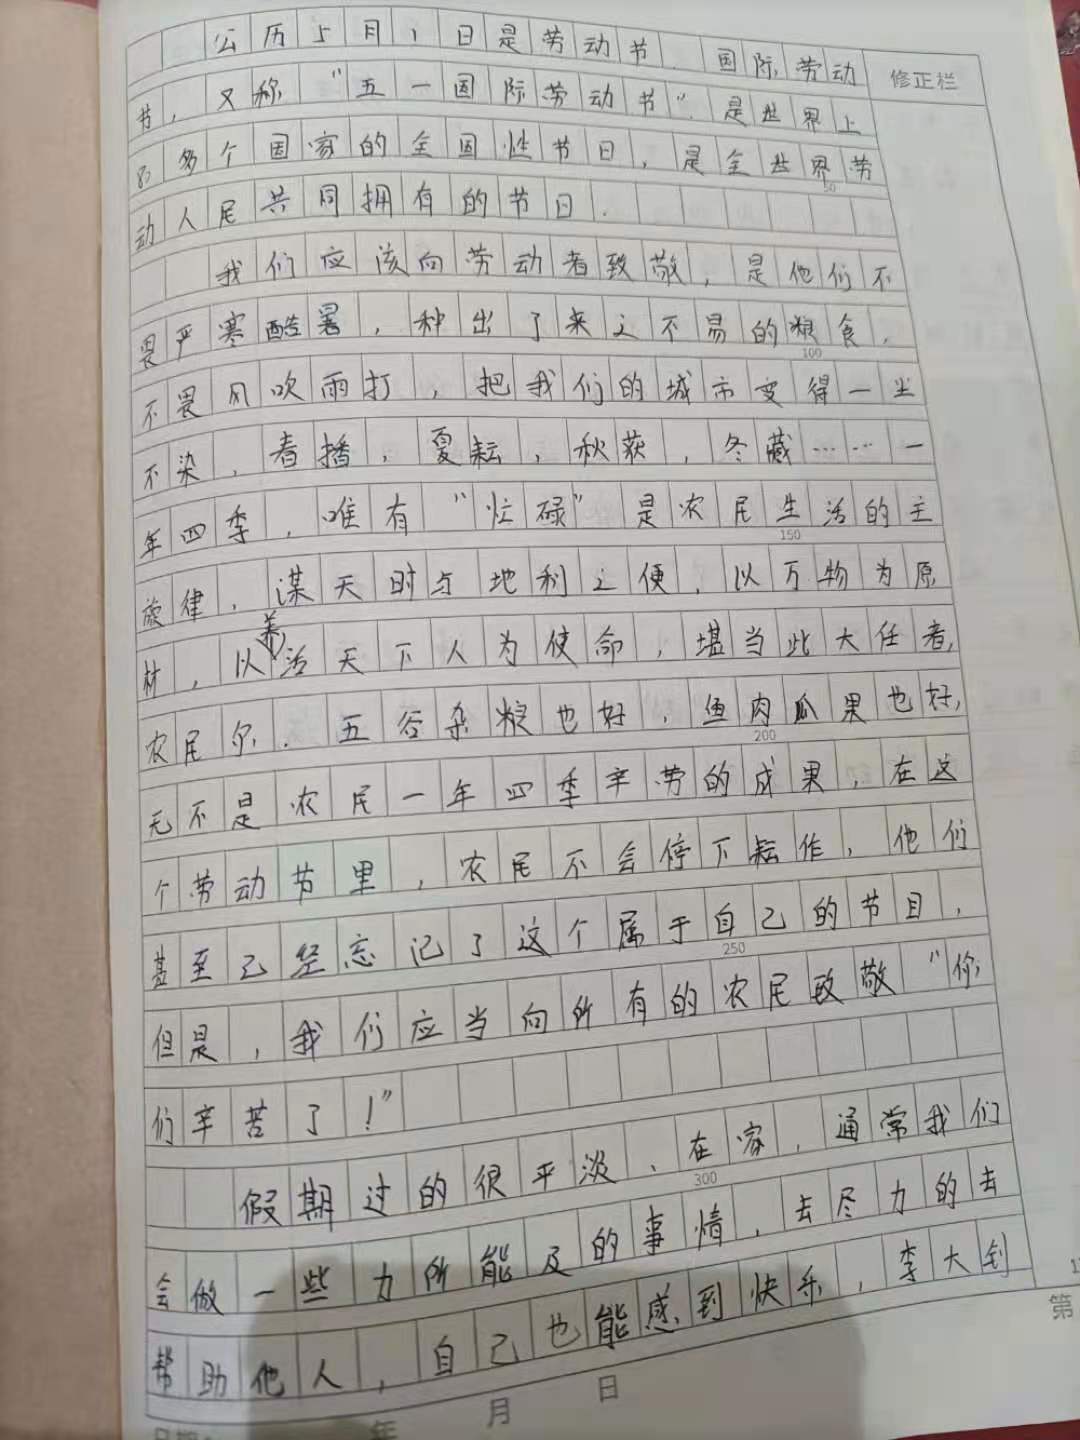 公历5月1日是劳动节.国际劳动
修正栏
节,又称"五一国际劳动节".是世界上
多个国家的全国性节日,是全世界劳
50
动人民共同拥有的节日.
我们应该向劳动者致敬,是他们不
畏严寒酷暑,种出了来之不易的粮食.
100
不畏风吹雨打,把我们的城市变得一尘
不染,春播,夏耘,秋获,冬藏……一
年四季,唯有"忙碌"是农民生活的主
150
旋律,谋天时与地利之便,以万物为原
材,以养活天下人为使命,堪当此大任者,
农民尔.五谷杂粮也好,鱼肉瓜果也好,
200
无不是农民一年四季辛劳的成果,在这
个劳动节里,农民不会停下耘作,他们
甚至已经忘记了这个属于自己的节日,
250
但是,我们应当向所有的农民致敬"你
们辛苦了!"
假期过的很平淡、在家,通常我们
300
会做一些力所能及的事情,去尽力的去
帮助他人,自己也能感到快乐,李大钊
第
年 月 日